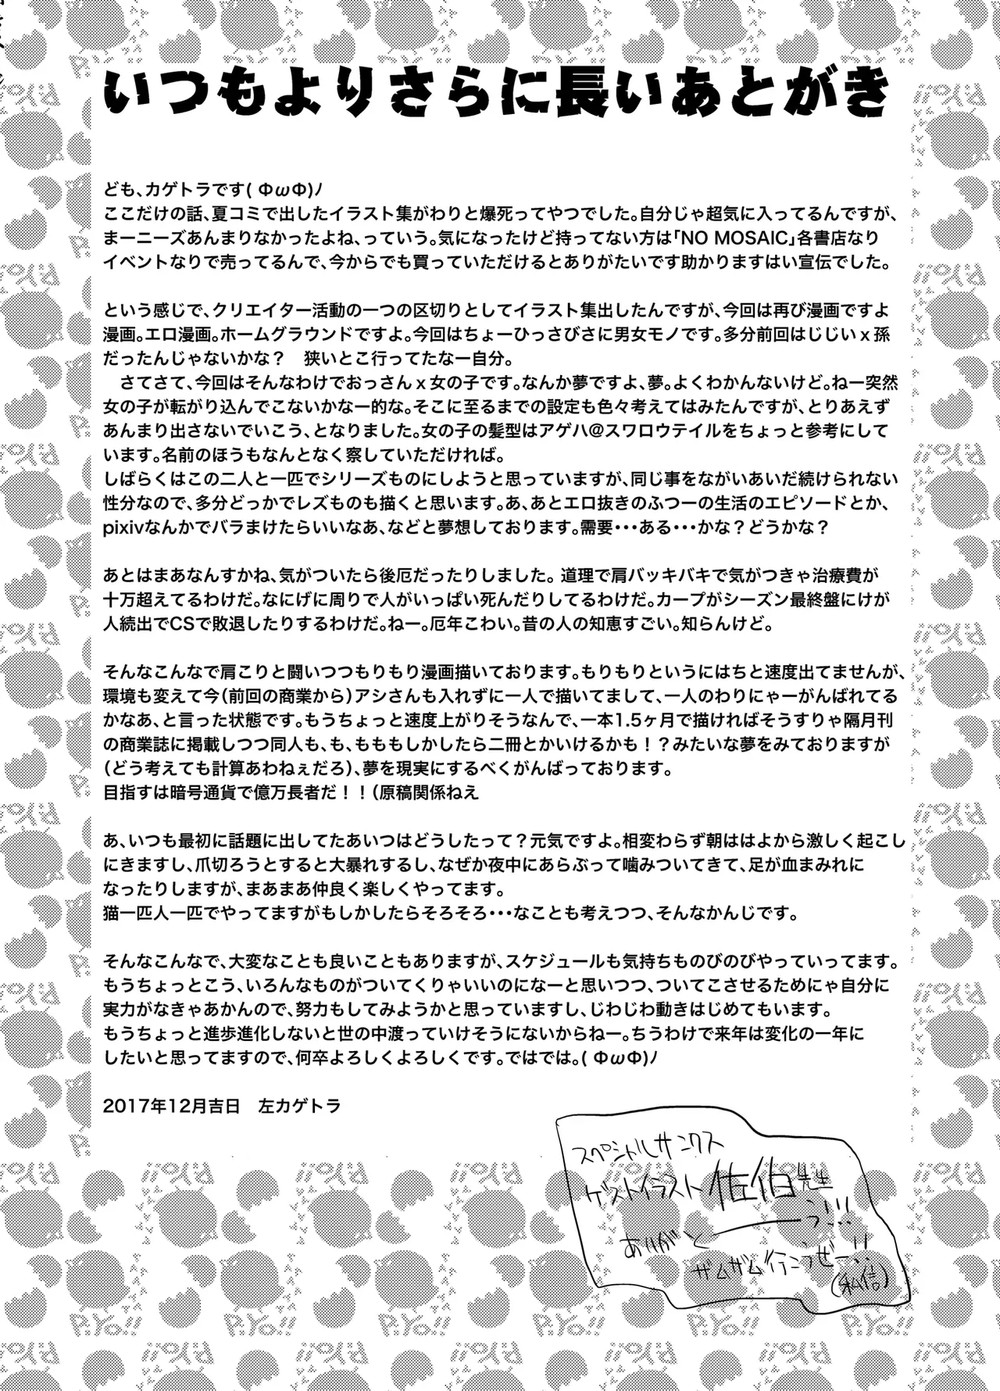 いつもよりさらに長いあとがき
ども、カゲトラです( ΦωΦ)ﾉ
ここだけの話、夏コミで出したイラスト集がわりと爆死ってやつでした。自分じゃ超気に入ってるんですが、
まーニーズあんまりなかったよね、っていう。気になったけど持ってない方は「NO MOSAIC」各書店なり
イベントなりで売ってるんで、今からでも買っていただけるとありがたいです助かりますはい宣伝でした。
という感じで、クリエイター活動の一つの区切りとしてイラスト集出したんですが、今回は再び漫画ですよ
漫画。エロ漫画。ホームグラウンドですよ。今回はちょーひっさびさに男女モノです。多分前回はじじいｘ孫
だったんじゃないかな？　狭いとこ行ってたなー自分。
　さてさて、今回はそんなわけでおっさんｘ女の子です。なんか夢ですよ、夢。よくわかんないけど。ねー突然
女の子が転がり込んでこないかなー的な。そこに至るまでの設定も色々考えてはみたんですが、とりあえず
あんまり出さないでいこう、となりました。女の子の髪型はアゲハ@スワロウテイルをちょっと参考にして
います。名前のほうもなんとなく察していただければ。
しばらくはこの二人と一匹でシリーズものにしようと思っていますが、同じ事をながいあいだ続けられない
性分なので、多分どっかでレズものも描くと思います。あ、あとエロ抜きのふつーの生活のエピソードとか、
pixivなんかでバラまけたらいいなあ、などと夢想しております。需要・・・ある・・・かな？どうかな？
あとはまあなんすかね、気がついたら後厄だったりしました。 道理で肩バッキバキで気がつきゃ治療費が
十万超えてるわけだ。なにげに周りで人がいっぱい死んだりしてるわけだ。カープがシーズン最終盤にけが
人続出でCSで敗退したりするわけだ。ねー。厄年こわい。昔の人の知恵すごい。知らんけど。
そんなこんなで肩こりと闘いつつもりもり漫画描いております。もりもりというにはちと速度出てませんが、
環境も変えて今(前回の商業から)アシさんも入れずに一人で描いてまして、一人のわりにゃーがんばれてる
かなあ、と言った状態です。もうちょっと速度上がりそうなんで、一本1.5ヶ月で描ければそうすりゃ隔月刊
の商業誌に掲載しつつ同人も、も、もももしかしたら二冊とかいけるかも！？みたいな夢をみておりますが
（どう考えても計算あわねぇだろ）、夢を現実にするべくがんばっております。
目指すは暗号通貨で億万長者だ！！（原稿関係ねえ
あ、いつも最初に話題に出してたあいつはどうしたって？元気ですよ。相変わらず朝ははよから激しく起こし
にきますし、爪切ろうとすると大暴れするし、なぜか夜中にあらぶって噛みついてきて、足が血まみれに
なったりしますが、まあまあ仲良く楽しくやってます。
猫一匹人一匹でやってますがもしかしたらそろそろ・・・なことも考えつつ、そんなかんじです。
そんなこんなで、大変なことも良いこともありますが、スケジュールも気持ちものびのびやっていってます。
もうちょっとこう、いろんなものがついてくりゃいいのになーと思いつつ、ついてこさせるためにゃ自分に
実力がなきゃあかんので、努力もしてみようかと思っていますし、じわじわ動きはじめてもいます。
もうちょっと進歩進化しないと世の中渡っていけそうにないからねー。ちうわけで来年は変化の一年に
したいと思ってますので、何卒よろしくよろしくです。ではでは。( ΦωΦ)ﾉ
2017年12月吉日　左カゲトラ
スペシャルサンクス
ゲストイラスト 佐伯先生
ありがとーーーう!!!
ザムザム行こうぜー!!
(私信)